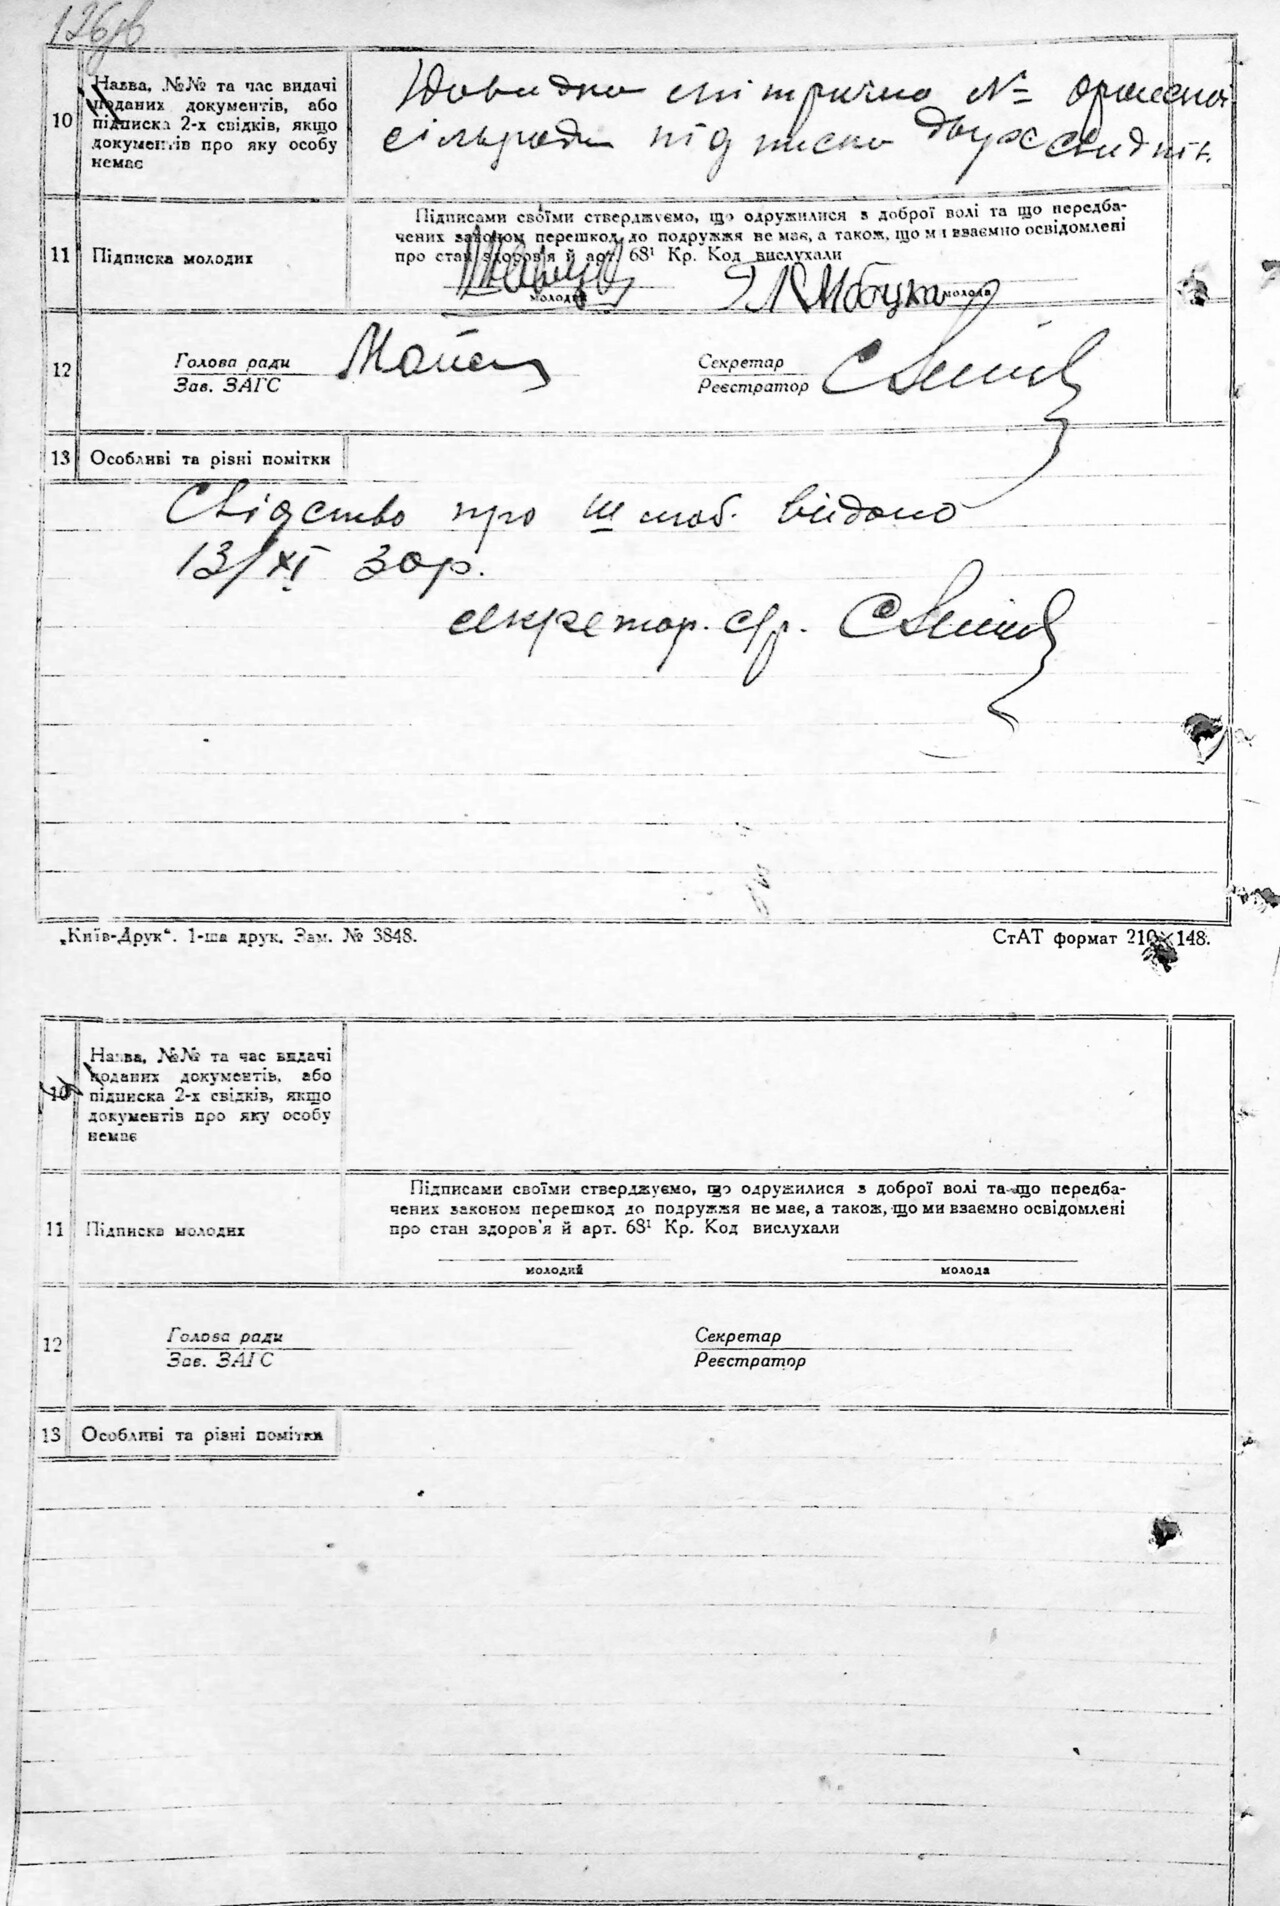 10
Назва, №№ та час видачі
поданих документів, або
підписка 2-х свідків, якщо
документів про яку особу
немає
Довидка
сільради підписка двух свидків.
11
Підписка молодих
Підписами своїми стверджуємо, що одружилися з доброї волі та що передба-
чених законом перешкод до подружжя не має, а також, що ми взаємно освідомлені
про стан здоров'я й арт. 68¹ Кр. Код вислухали
молодий
молода
12
Голова ради
Зав. ЗАГС
Секретар
Реєстратор
13
Особливі та різні помітки
Свідство про шлюб. видано
13/XI 30р.
секретар. с/р.
„Київ-Друк“. 1-ша друк. Зам. № 3848.
СтАТ формат 210×148.
10
Назва, №№ та час видачі
поданих документів, або
підписка 2-х свідків, якщо
документів про яку особу
немає
11
Підписка молодих
Підписами своїми стверджуємо, що одружилися з доброї волі та що передба-
чених законом перешкод до подружжя не має, а також, що ми взаємно освідомлені
про стан здоров'я й арт. 68¹ Кр. Код вислухали
молодий
молода
12
Голова ради
Зав. ЗАГС
Секретар
Реєстратор
13
Особливі та різні помітки